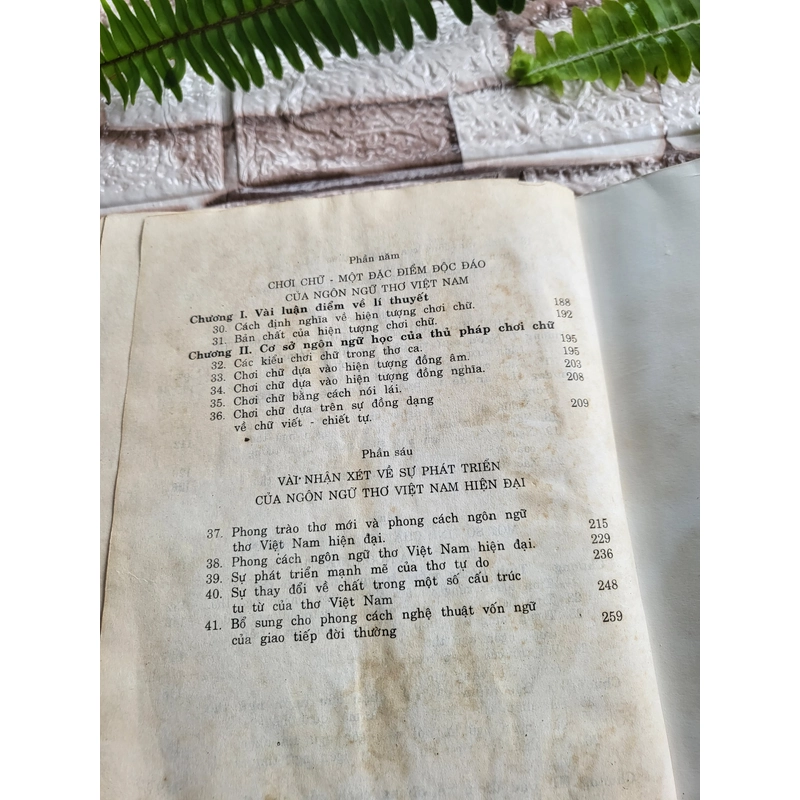 Phần năm
CHƠI CHỮ - MỘT ĐẶC ĐIỂM ĐỘC ĐÁO
CỦA NGÔN NGỮ THƠ VIỆT NAM
Chương I. Vài luận điểm về lí thuyết
30. Cách định nghĩa về hiện tượng chơi chữ. 188
31. Bản chất của hiện tượng chơi chữ. 192
Chương II. Cơ sở ngôn ngữ học của thủ pháp chơi chữ
32. Các kiểu chơi chữ trong thơ ca. 195
33. Chơi chữ dựa vào hiện tượng đồng âm. 195
34. Chơi chữ dựa vào hiện tượng đồng nghĩa. 203
35. Chơi chữ bằng cách nói lái. 208
36. Chơi chữ dựa trên sự đồng dạng 209
về chữ viết - chiết tự.
Phần sáu
VÀI NHẬN XÉT VỀ SỰ PHÁT TRIỂN
CỦA NGÔN NGỮ THƠ VIỆT NAM HIỆN ĐẠI
37. Phong trào thơ mới và phong cách ngôn ngữ 215
thơ Việt Nam hiện đại.
38. Phong cách ngôn ngữ thơ Việt Nam hiện đại. 229
39. Sự phát triển mạnh mẽ của thơ tự do 236
40. Sự thay đổi về chất trong một số cấu trúc 248
tu từ của thơ Việt Nam
41. Bổ sung cho phong cách nghệ thuật vốn ngữ 259
của giao tiếp đời thường